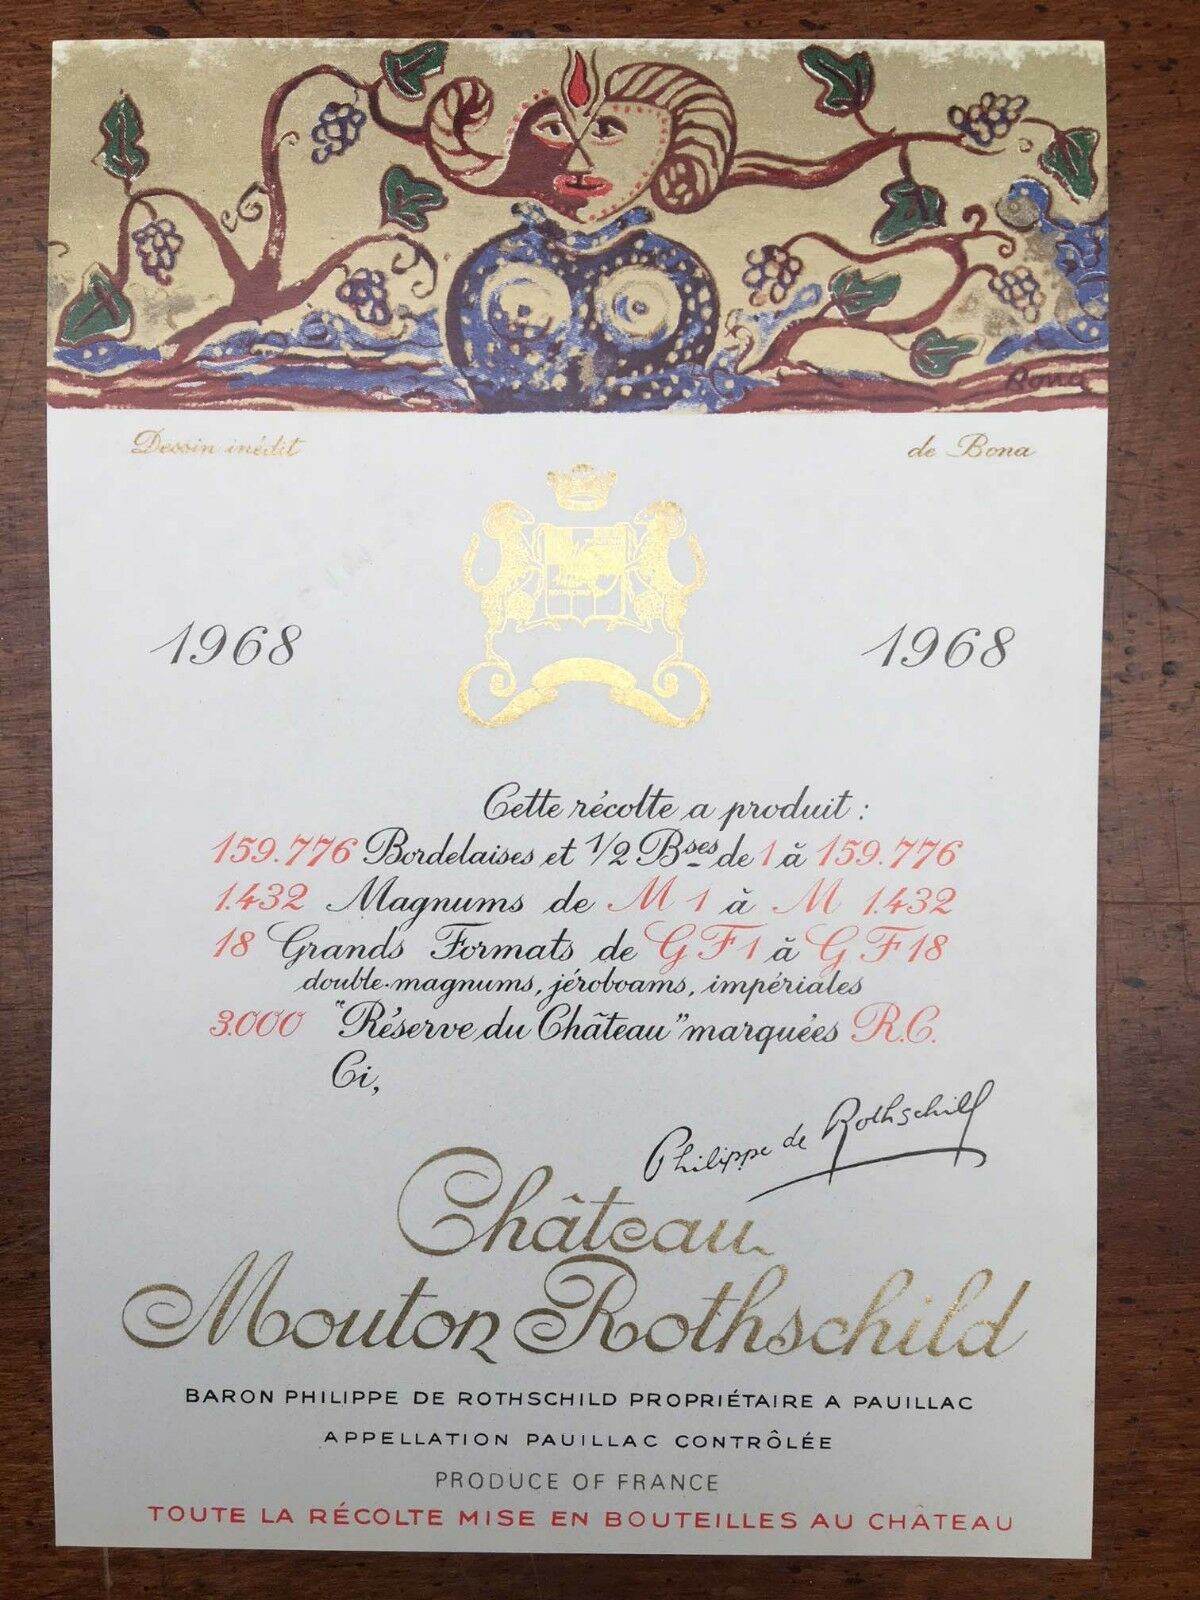 Bona
Dessin inédit de Bona
MOUTON
ROTHSCHILD
1968 1968
Cette récolte a produit :
159.776 Bordelaises et 1/2 Bses de 1 à 159.776
1.432 Magnums de M 1 à M 1.432
18 Grands Formats de G F 1 à G F 18
double-magnums, jéroboams, impériales
3.000 "Réserve du Château" marquées R.C.
Ci,
Philippe de Rothschild
Château
Mouton Rothschild
BARON PHILIPPE DE ROTHSCHILD PROPRIÉTAIRE A PAUILLAC
APPELLATION PAUILLAC CONTRÔLÉE
PRODUCE OF FRANCE
TOUTE LA RÉCOLTE MISE EN BOUTEILLES AU CHÂTEAU